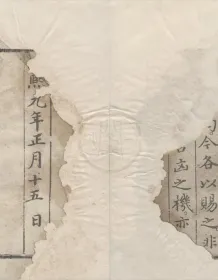 令各以賜之非
凶之機亦
熙九年正月十五日